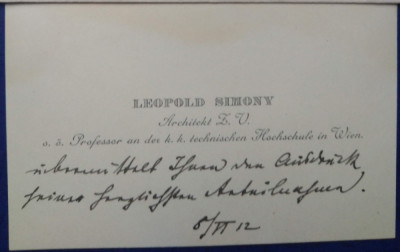 LEOPOLD SIMONY
Architekt Z. V.
a. ö. Professor an der k. k. technischen Hochschule in Wien.
übermittelt Ihnen den Ausdruck
seiner herzlichsten Anteilnahme.
5/VI 12